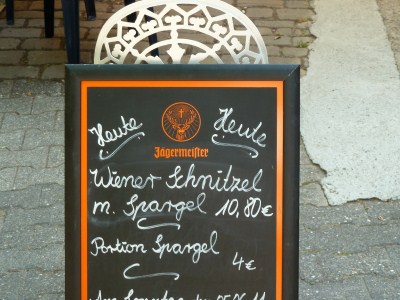 Heute Heute
Jägermeister
Wiener Schnitzel
m. Spargel 10,80€
Portion Spargel
4€